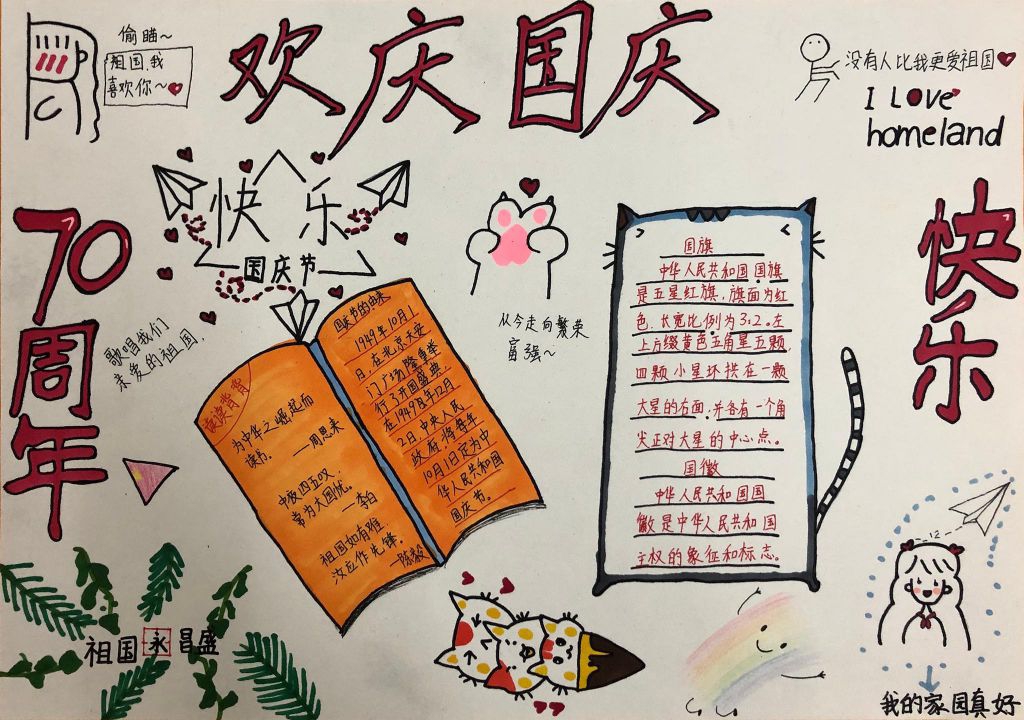 欢庆国庆
偷瞄~
祖国,我
喜欢你~
没有人比我更爱祖国
I LOve
homeland
快乐
国庆节
70周年
快乐
歌唱我们
亲爱的祖国.
从今走向繁荣
富强~
读读背背
为中华之崛起而
读书。
—周恩来
中夜四五叹,
常为大国忧。
—李白
祖国如有难,
汝应作先锋。
—陈毅
国庆节的由来
1949年10月1
日,在北京天安
门广场隆重举
行了开国盛典
在1949年12月
2日中央人民
政府,将每年
10月1日定为中
华人民共和国
国庆节。
国旗
中华人民共和国国旗
是五星红旗,旗面为红
色,长宽比例为3:2。左
上方缀黄色五角星五颗,
四颗小星环拱在一颗
大星的右面,并各有一个角
尖正对大星的中心点。
国徽
中华人民共和国国
徽是中华人民共和国
主权的象征和标志。
祖国永昌盛
我的家园真好